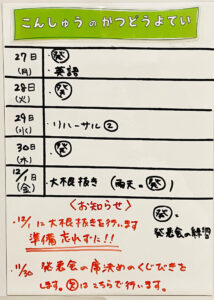 こんしゅうのかつどうよてい
27日
(月)
・発
・英語
28日
(火)
・発
29日
(水)
・リハーサル②
30日
(木)
・発
12/1日
(金)
・大根抜き (雨天→発)
<お知らせ>
・12/1に大根抜きを行います
準備忘れずに!!
発…
発表会の練習
・11/30 発表会の席決めのくじびきを
します。
はこちらで行います。